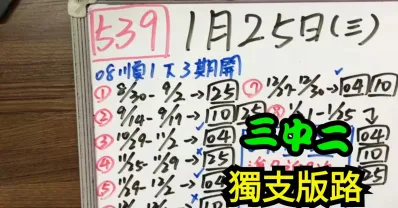 539 1月25日(三)
08順1下3期開
① 8/30-9/2→25
② 9/14-9/17→10 25
③ 10/29-11/2→04
④ 11/25-11/29→25
⑤ 12/2→04
⑦ 12/27-12/30→04 10
1/25
04
10
25
三中二
獨支版路